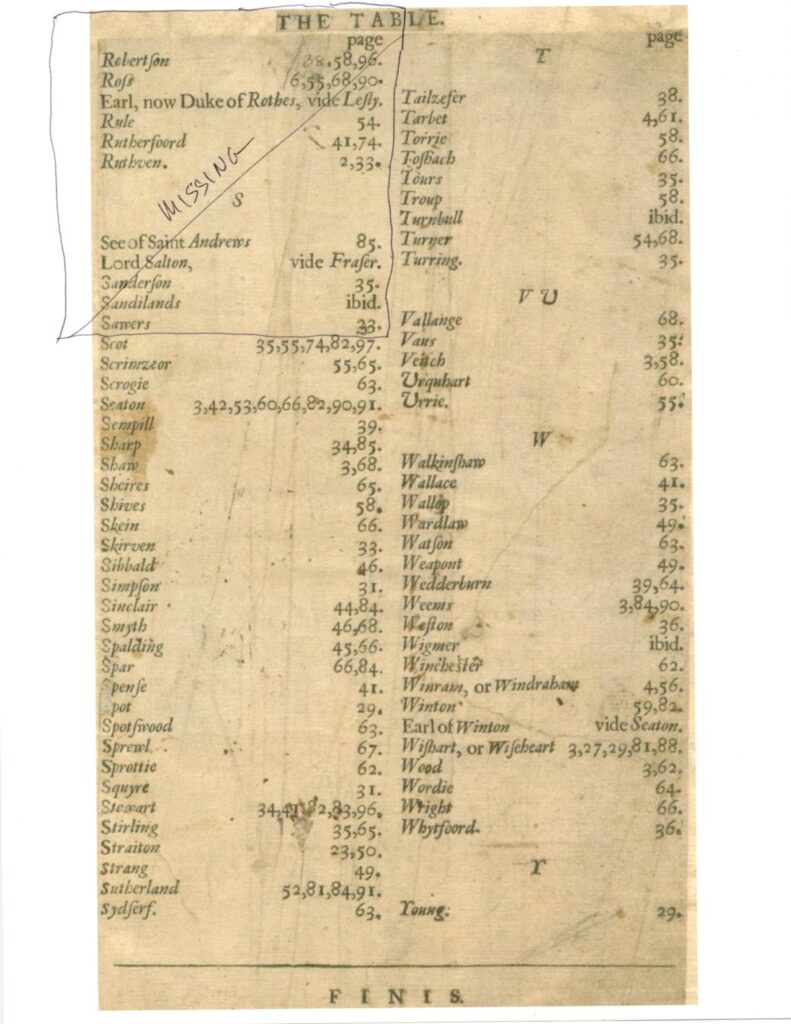 THE TABLE.
page
Robertſon 38.58,96.
Roſs 6,55,68,90.
Earl, now Duke of Rothes, vide Leſly.
Rule 54.
Rutherfoord 41,74.
Ruthven. 2,33.
MISSING
S
See of Saint Andrews 85.
Lord Salton, vide Fraſer.
Sanderſon 35.
Sandilands ibid.
Sawers 33.
Scot 35,55,74,82,97.
Scrimzeor 55,65.
Scrogie 63.
Seaton 3,42,53,60,66,82,90,91.
Sempill 39.
Sharp 34,85.
Shaw 3,68.
Sheires 65.
Shives 58.
Skein 66.
Skirven 33.
Sibbald 46.
Simpſon 31.
Sinclair 44,84.
Smyth 46,68.
Spalding 45,66.
Spar 66,84.
Spenſe 41.
Spot 29.
Spotſwood 63.
Sprewl. 67.
Sprottie 62.
Squyre 31.
Stewart 34,41, 82,83,96.
Stirling 35,65.
Straiton 23,50.
Strang 49.
Sutherland 52,81,84,91.
Sydſerf. 63.
page
T
Tailzefer 38.
Tarbet 4,61.
Torrie 58.
Toſhach 66.
Tours 35.
Troup 58.
Turnbull ibid.
Turner 54,68.
Turring. 35.
V U
Vallange 68.
Vaus 35.
Veitch 3,58.
Urquhart 60.
Urrie. 55.
W
Walkinſhaw 63.
Wallace 41.
Wallop 35.
Wardlaw 49.
Watſon 63.
Weapont 49.
Wedderburn 39,64.
Weems 3,84,90.
Weſton 36.
Wigmer ibid.
Wincheſter 62.
Winram, or Windraham 4,56.
Winton 59,82.
Earl of Winton vide Seaton.
Wiſhart, or Wiſeheart 3,27,29,81,88.
Wood 3,62.
Wordie 64.
Wright 66.
Whytfoord. 36.
Y
Young. 29.
FINIS.